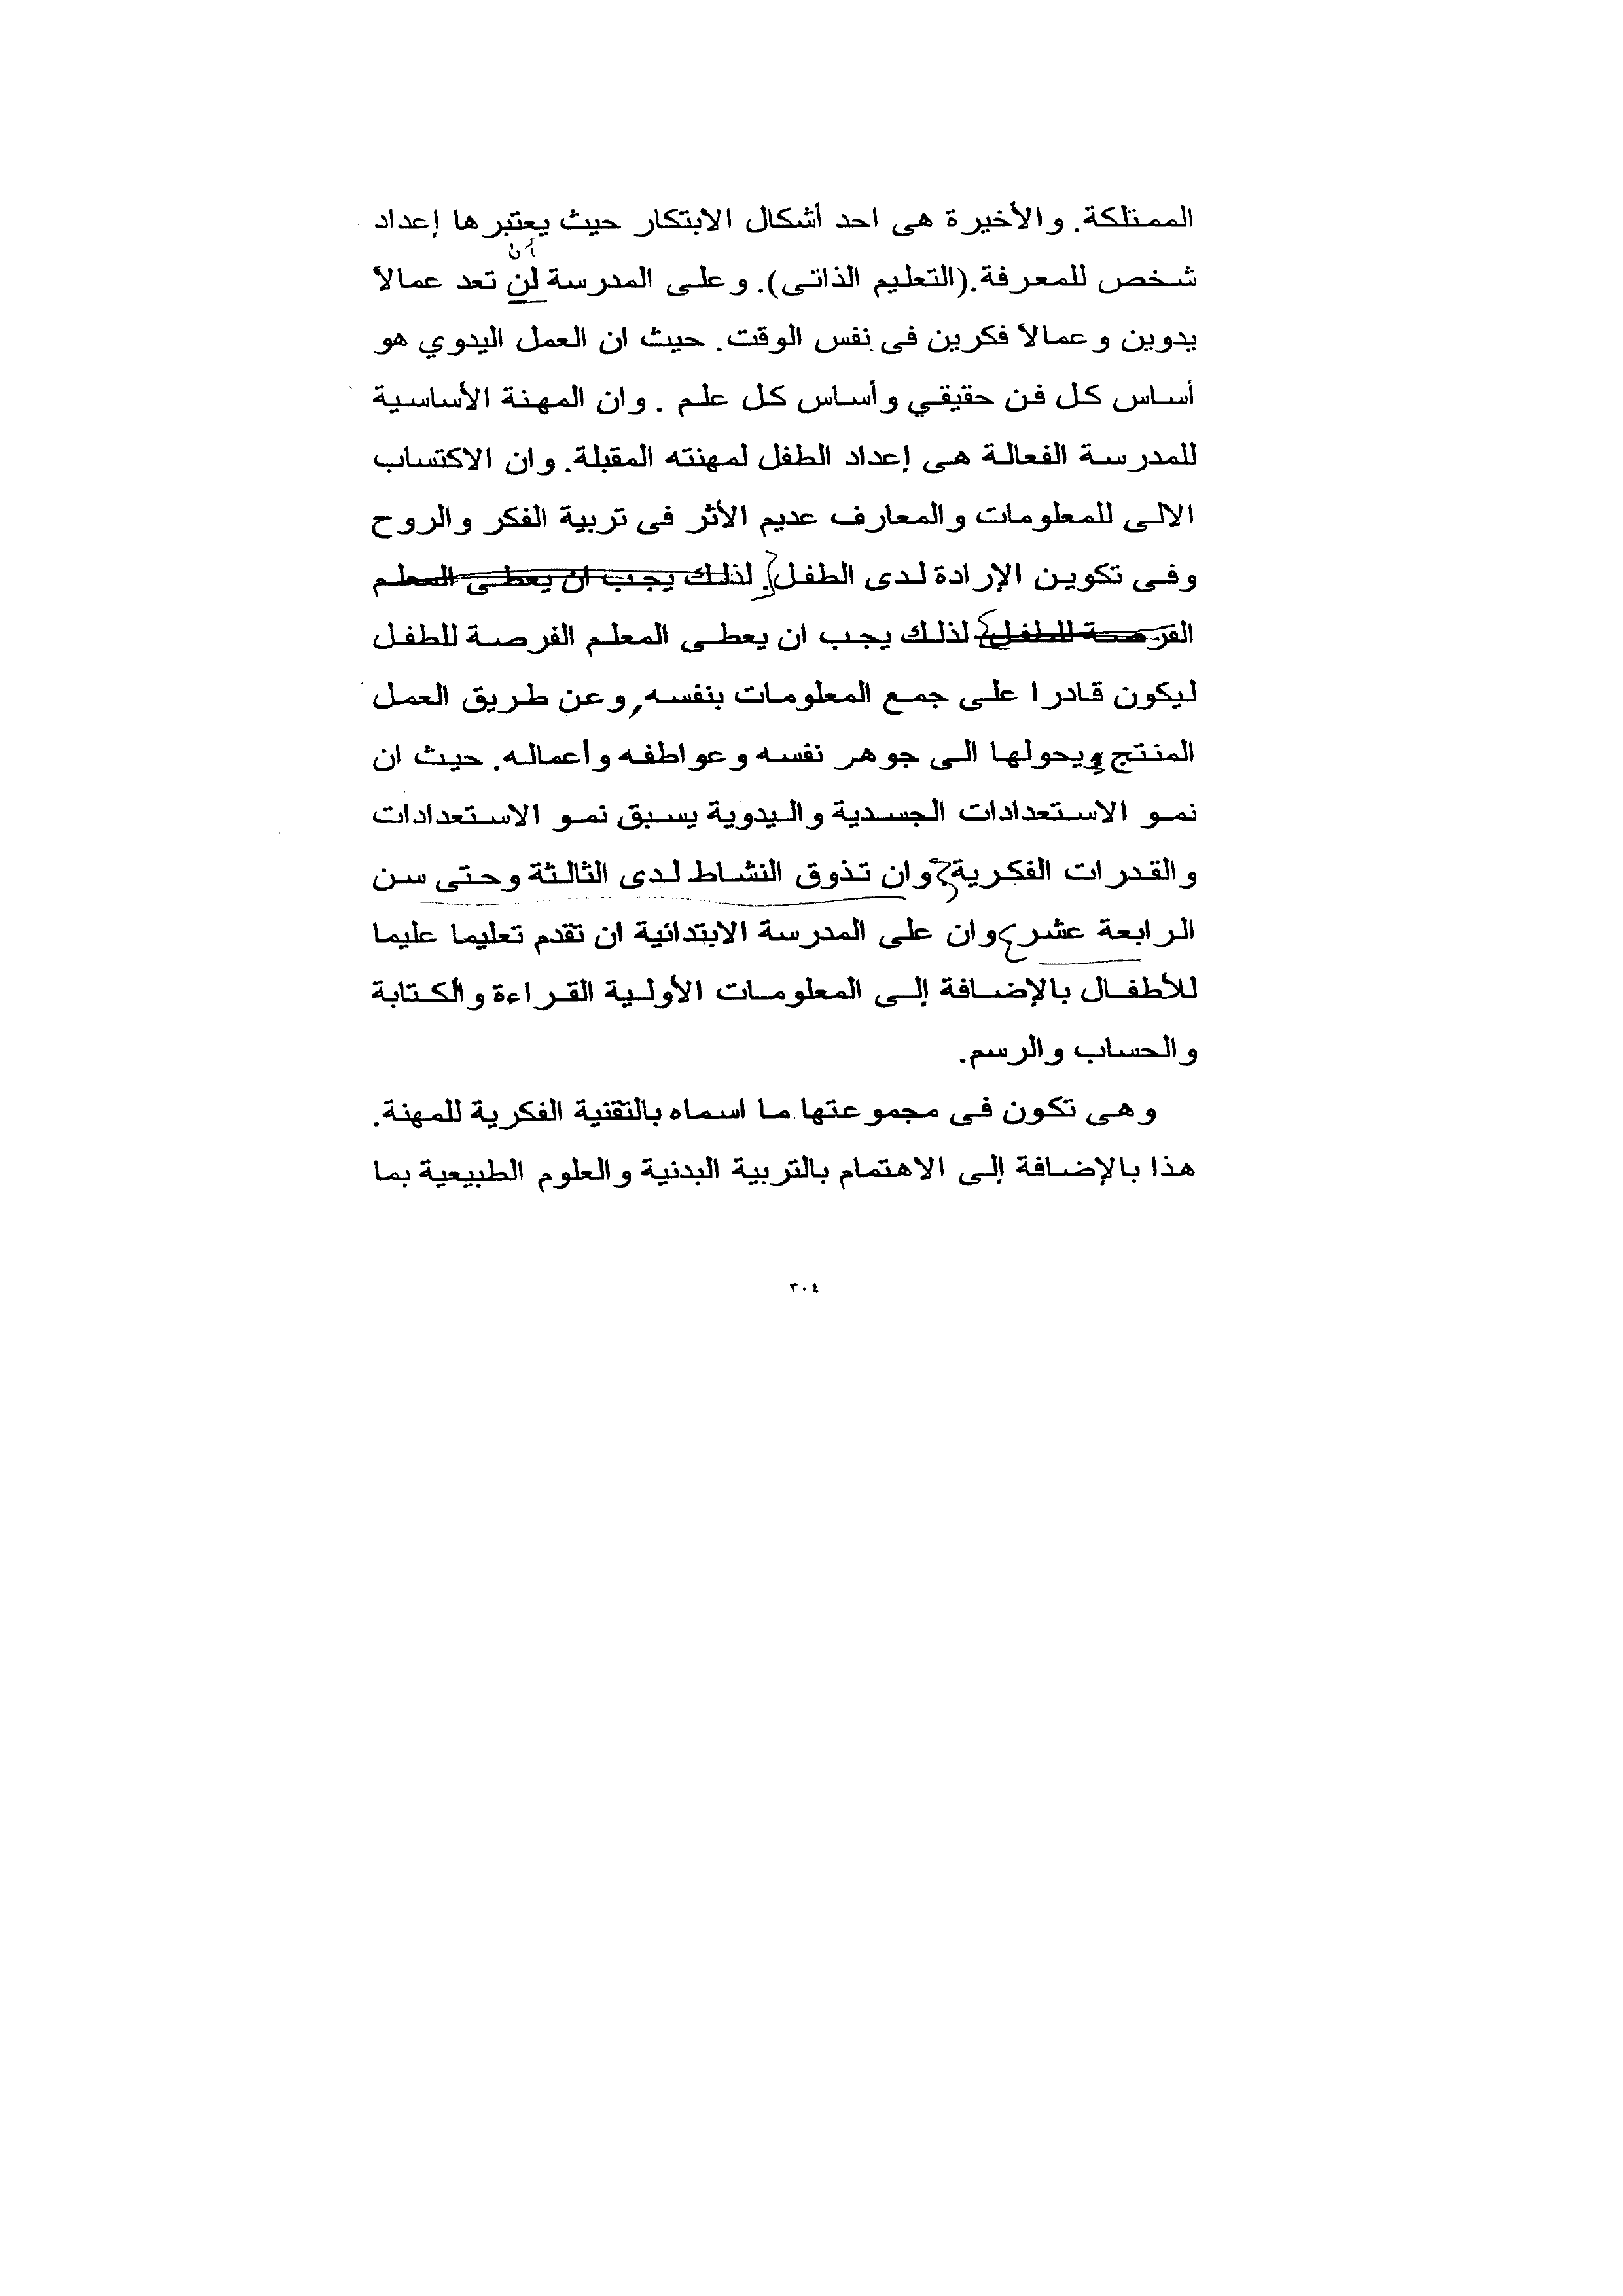 الممتلكة. والأخيرة هى احد أشكال الابتكار حيث يعتبرها إعداد
أن
شخص للمعرفة.(التعليم الذاتى). وعلى المدرسة لن تعد عمالا
يدوين وعمالا فكرين فى نفس الوقت. حيث ان العمل اليدوي هو
أساس كل فن حقيقي وأساس كل علم . وان المهنة الأساسية
للمدرسة الفعالة هى إعداد الطفل لمهنته المقبلة. وان الاكتساب
الالى للمعلومات والمعارف عديم الأثر فى تربية الفكر والروح
وفى تكوين الإرادة لدى الطفل. لذلك يجب ان يعطى المعلم
الفرصة للطفل لذلك يجب ان يعطى المعلم الفرصة للطفل
ليكون قادرا على جمع المعلومات بنفسه, وعن طريق العمل
المنتج ويحولها الى جوهر نفسه وعواطفه وأعماله. حيث ان
نمو الاستعدادات الجسدية واليدوية يسبق نمو الاستعدادات
والقدرات الفكرية وان تذوق النشاط لدى الثالثة وحتى سن
الرابعة عشر وان على المدرسة الابتدائية ان تقدم تعليما عليما
للأطفال بالإضافة إلى المعلومات الأولية القراءة والكتابة
والحساب والرسم.
وهى تكون فى مجموعتها ما اسماه بالتقنية الفكرية للمهنة.
هذا بالإضافة إلى الاهتمام بالتربية البدنية والعلوم الطبيعية بما
٣٠٤